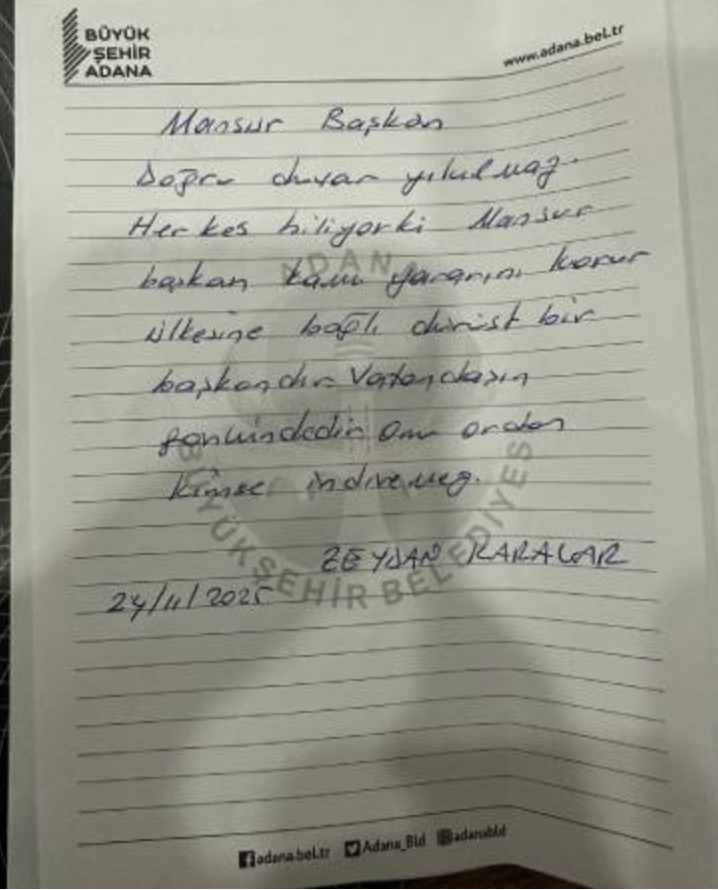 BÜYÜK
ŞEHİR
ADANA
www.adana.bel.tr
Mansur Başkan
Doğru duvar yıkılmaz.
Herkes biliyorki Mansur
başkan kamu yararını korur
ülkesine bağlı dürüst bir
başkandır Vatandaşın
gönlündedir onu ordan
kimse indiremez.
ZEYDAN KARALAR
24/11/2025
ADANA
BÜYÜKŞEHİR BELEDİYES
adana.bel.tr Adana_Bld adanabld